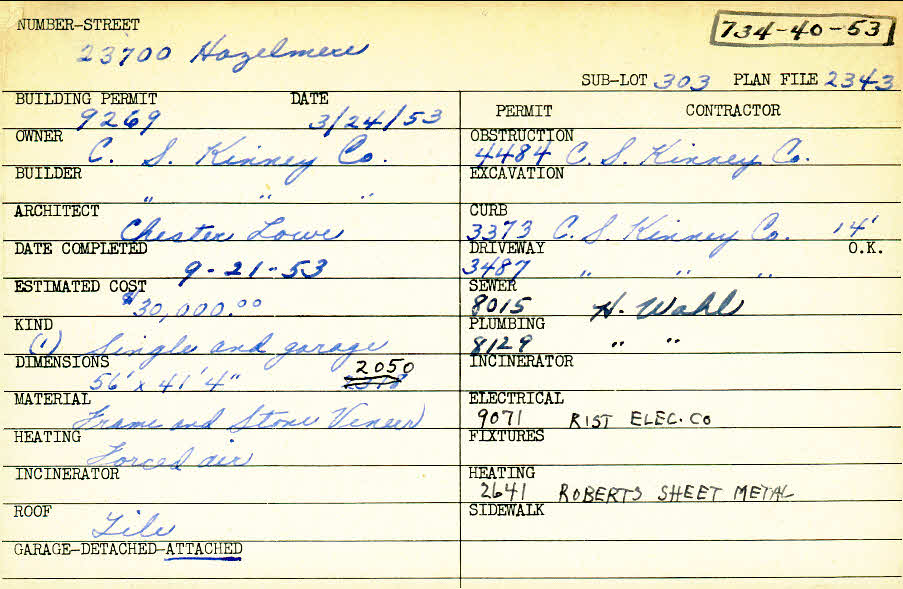 NUMBER-STREET
734-40-53
23700 Hazelmere
SUB-LOT 303 PLAN FILE 2343
BUILDING PERMIT DATE
9269 3/24/53
OWNER
C. S. Kinney Co.
BUILDER
" " "
ARCHITECT
Chester Lowe
DATE COMPLETED
9-21-53
ESTIMATED COST
$30,000.00
KIND
(1) Single and garage
DIMENSIONS 2050
56' x 41' 4"
MATERIAL
Frame and Stone Veneer
HEATING
Forced air
INCINERATOR
ROOF
Tile
GARAGE-DETACHED-ATTACHED
PERMIT CONTRACTOR
OBSTRUCTION
4484 C. S. Kinney Co.
EXCAVATION
CURB
3373 C. S. Kinney Co. 14'
DRIVEWAY O.K.
3487 " " "
SEWER
8015 H. Wahl
PLUMBING
8129 " "
INCINERATOR
ELECTRICAL
9071 RIST ELEC. CO
FIXTURES
HEATING
2641 ROBERTS SHEET METAL
SIDEWALK